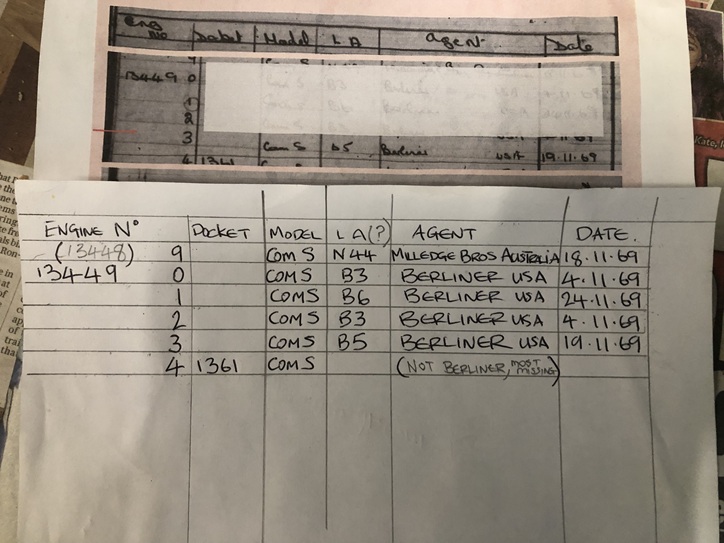 Eng No Docket Model L A Agent Date
13449 0
1
2
3 Com S B5 Berliner USA 19.11.69
4 1361
ENGINE Nº DOCKET MODEL L A(?) AGENT DATE.
(13448) 9 COM S N44 MILLEDGE BROS AUSTRALIA 18.11.69
13449 0 COM S B3 BERLINER USA 4.11.69
1 COM S B6 BERLINER USA 24.11.69
2 COM S B3 BERLINER USA 4.11.69
3 COM S B5 BERLINER USA 19.11.69
4 1361 COM S (NOT BERLINER, MOST MISSING)